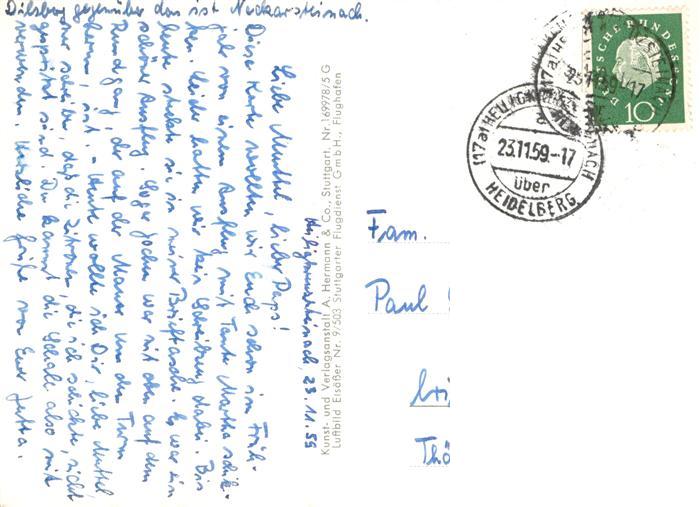 Dilsberg gegenüber das ist Neckarsteinach.
Heiligkreuzsteinach, 23.11.59
Liebe Muttel, lieber Paps!
Diese Karte wollten wir Euch schon im Früh-
jahr von einem Ausflug mit Tante Martha schik-
ken. Leider hatten wir kein Schreibzeug dabei. Bis
heute steckte sie in meiner Brieftasche. Es war ein
schöner Ausflug. Sogar Jochen war mit oben auf dem
Rundgang, der auf der Mauer um den Turm
herum ist. - Heute wollte ich Dir, liebe Muttel,
nur schreiben, daß die Zitronen, die ich schickte, nicht
gespritzt sind. Du kannst die Schale also mit
verwenden. Herzliche Grüße von Eurer Jutta.
Kunst- und Verlagsanstalt A. Hermann & Co., Stuttgart, Nr. 169978/5 G
Luftbild Elsäßer Nr. 9/503 Stuttgarter Flugdienst GmbH., Flughafen
DEUTSCHE BUNDESPOST
10
(17a) HEILIGKREUZSTEINACH
a
23.11.59.-17
über
HEIDELBERG
Fam.
Paul
Thö